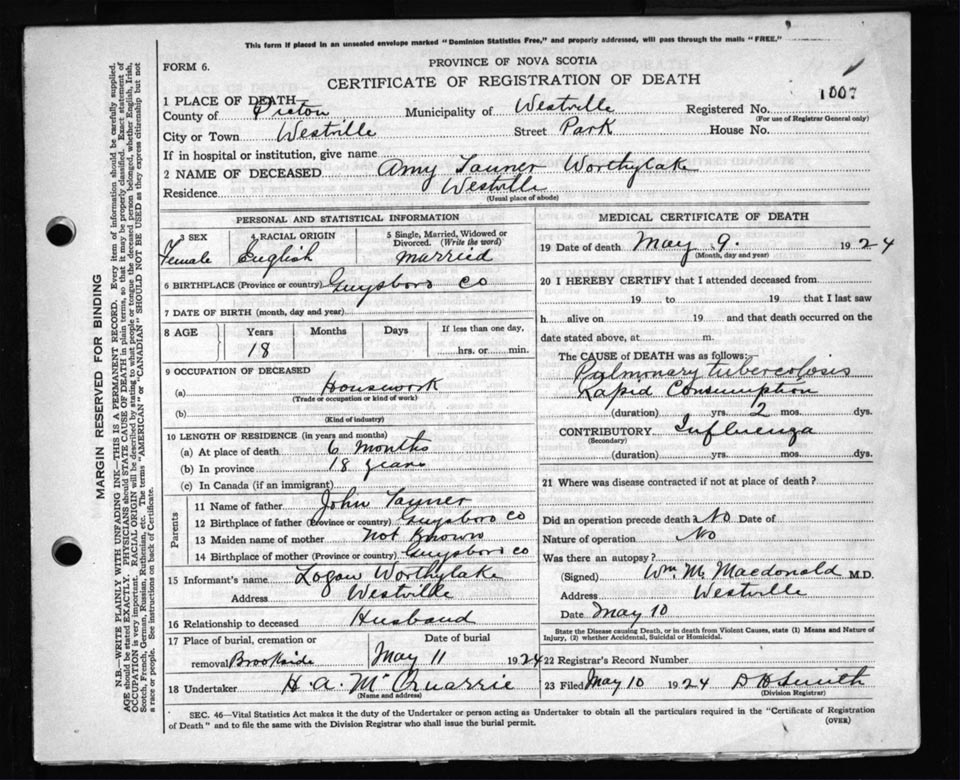 This form if placed in an unsealed envelope marked "Dominion Statistics Free," and properly addressed, will pass through the mails "FREE."
FORM 6.
PROVINCE OF NOVA SCOTIA
CERTIFICATE OF REGISTRATION OF DEATH
1007
1 PLACE OF DEATH
County of Pictou Municipality of Westville Registered No.
(For use of Registrar General only)
City or Town Westville Street Park House No.
If in hospital or institution, give name
2 NAME OF DECEASED Amy Tanner Worthylake
Residence Westville
(Usual place of abode)
PERSONAL AND STATISTICAL INFORMATION
3 SEX 4 RACIAL ORIGIN 5 Single, Married, Widowed or Divorced. (Write the word)
Female English Married
6 BIRTHPLACE (Province or country) Guysboro Co
7 DATE OF BIRTH (month, day and year)
8 AGE Years Months Days If less than one day,
18 hrs. or min.
9 OCCUPATION OF DECEASED
(a) Housework
(Trade or occupation or kind of work)
(b)
(Kind of industry)
10 LENGTH OF RESIDENCE (in years and months)
(a) At place of death 6 months
(b) In province 18 years
(c) In Canada (if an immigrant)
Parents
11 Name of father John Tanner
12 Birthplace of father (Province or country) Guysboro Co
13 Maiden name of mother Not Known
14 Birthplace of mother (Province or country) Guysboro Co
15 Informant's name Logan Worthylake
Address Westville
16 Relationship to deceased Husband
17 Place of burial, cremation or Date of burial
removal Brookside May 11 1924
18 Undertaker H. A. McQuarrie
(Name and address)
MEDICAL CERTIFICATE OF DEATH
19 Date of death May 9. 1924
(Month, day and year)
20 I HEREBY CERTIFY that I attended deceased from
19 to 19 that I last saw
h alive on 19 and that death occurred on the
date stated above, at m.
The CAUSE of DEATH was as follows:
Pulmonary tubercolosis
Rapid Consumption
(duration) yrs. 2 mos. dys.
CONTRIBUTORY Influenza
(Secondary)
(duration) yrs. mos. dys.
21 Where was disease contracted if not at place of death?
Did an operation precede death? No Date of
Nature of operation No
Was there an autopsy?
(Signed) Wm M. Macdonald M.D.
Address Westville
Date May 10
State the Disease causing Death, or in death from Violent Causes, state (1) Means and Nature of
Injury, (2) whether Accidental, Suicidal or Homicidal.
22 Registrar's Record Number
23 Filed May 10 1924 D D Smith
(Division Registrar)
SEC. 46—Vital Statistics Act makes it the duty of the Undertaker or person acting as Undertaker to obtain all the particulars required in the "Certificate of Registration
of Death" and to file the same with the Division Registrar who shall issue the burial permit.
(OVER)
MARGIN RESERVED FOR BINDING
N.B.—WRITE PLAINLY WITH UNFADING INK—THIS IS A PERMANENT RECORD. Every item of information should be carefully supplied.
AGE should be stated EXACTLY. PHYSICIANS should STATE CAUSE OF DEATH in plain terms, so that it may be properly classified. Exact statement of
OCCUPATION is very important. RACIAL ORIGIN will be described by stating to what people or tongue the deceased person belonged, whether English, Irish,
Scotch, French, German, Russian, Ruthenian, etc. The terms "AMERICAN" or "CANADIAN" SHOULD NOT BE USED as they express citizenship but not
a race or people. See instructions on back of Certificate.